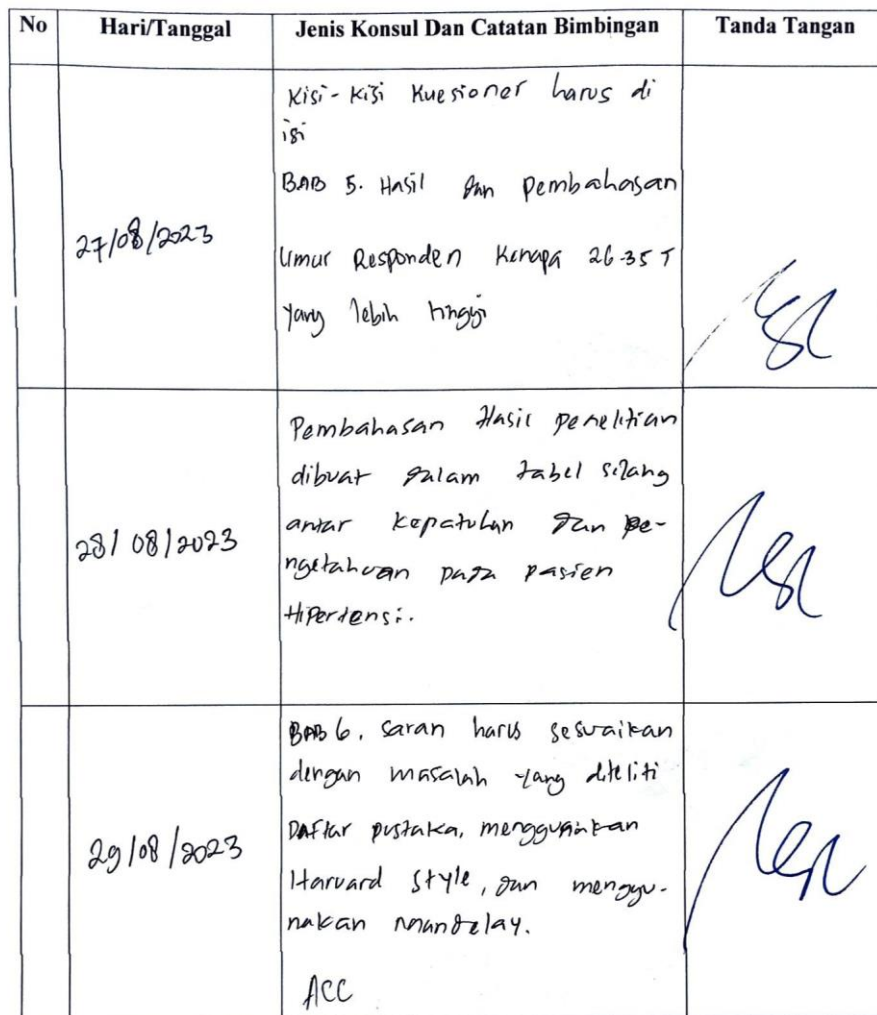 No Hari/Tanggal Jenis Konsul Dan Catatan Bimbingan Tanda Tangan
27/08/2023
Kisi-Kisi Kuesioner harus di
isi
BAB 5. Hasil dan Pembahasan
Umur Responden Kenapa 26-35 T
yang lebih tinggi
28/08/2023
Pembahasan Hasil penelitian
dibuat dalam tabel silang
antar Kepatuhan dan pe-
ngetahuan pada pasien
Hipertensi.
29/08/2023
BAB 6. saran harus sesuaikan
dengan masalah yang diteliti
Daftar pustaka, menggunakan
Harvard Style, dan menggu-
nakan mandelay.
ACC